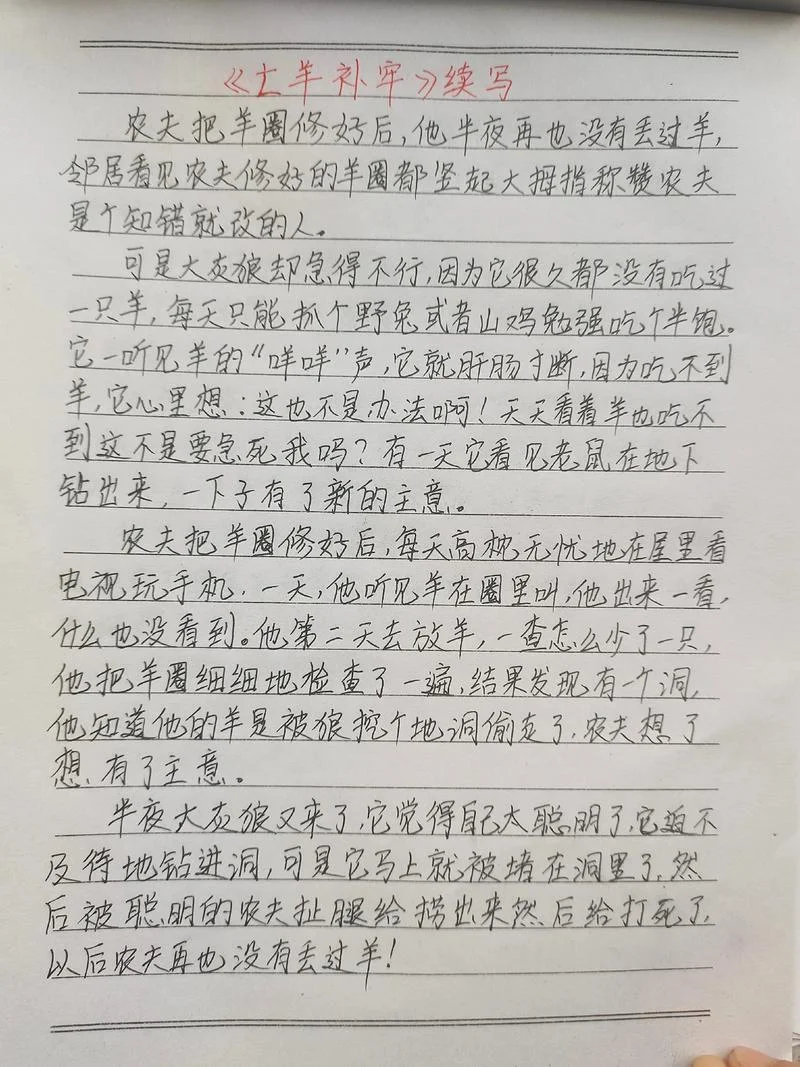 《亡羊补牢》续写
农夫把羊圈修好后,他半夜再也没有丢过羊,
邻居看见农夫修好的羊圈都竖起大拇指称赞农夫
是个知错就改的人。
可是大灰狼却急得不行,因为它很久都没有吃过
一只羊,每天只能抓个野兔或者山鸡勉强吃个半饱。
它一听见羊的“咩咩”声,它就肝肠寸断,因为吃不到
羊,它心里想:这也不是办法啊!天天看着羊也吃不
到这不是要急死我吗?有一天它看见老鼠在地下
钻出来,一下子有了新的主意。
农夫把羊圈修好后,每天高枕无忧地在屋里看
电视玩手机,一天,他听见羊在圈里叫,他出来一看,
什么也没看到。他第二天去放羊,一查怎么少了一只,
他把羊圈细细地检查了一遍,结果发现有一个洞,
他知道他的羊是被狼挖个地洞偷走了,农夫想了
想,有了主意。
半夜大灰狼又来了,它觉得自己太聪明了,它迫不
及待地钻进洞,可是它马上就被堵在洞里了,然
后被聪明的农夫扯腿给捞出来然后给打死了,
以后农夫再也没有丢过羊!